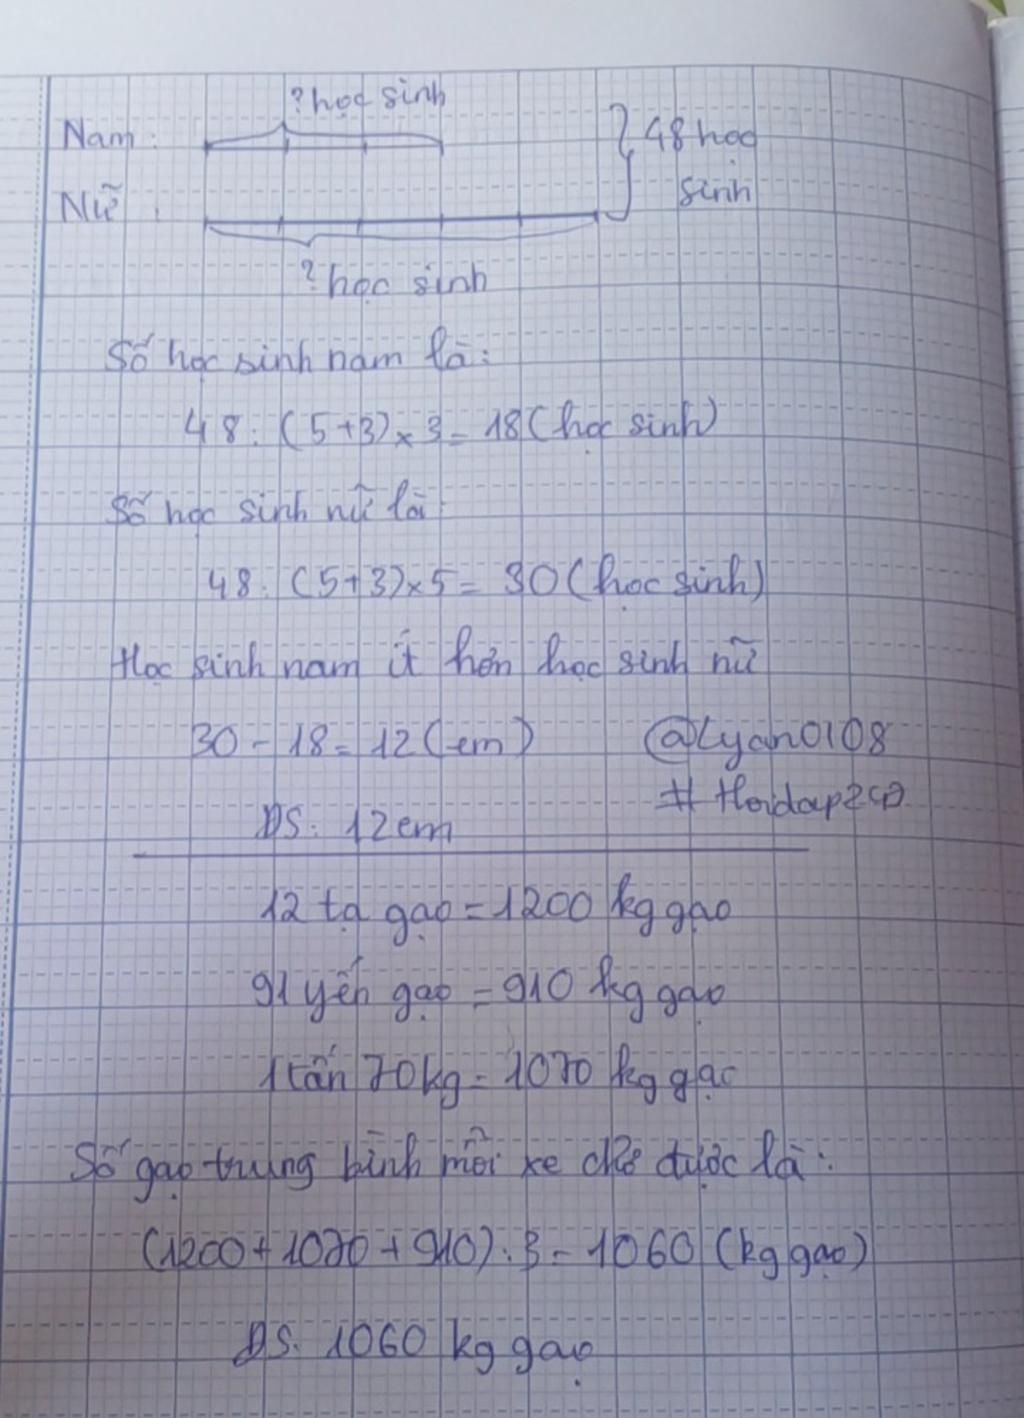 ?học sinh
Nam:
48 học
sinh
Nữ:
?học sinh
Số học sinh nam là:
48: (5+3)×3=18(học sinh)
Số học sinh nữ là:
48: (5+3)×5=30(học sinh)
Học sinh nam ít hơn học sinh nữ
30-18=12(em)
@Lyan0108
ĐS: 12em
12 tạ gạo=1200 kg gạo
91 yến gạo =910 kg gạo
1tấn 70kg=1070 kg gạo
Số gạo trung bình mỗi xe chở được là:
(1200+1070+910):3=1060 (kg gạo)
ĐS: 1060 kg gạo